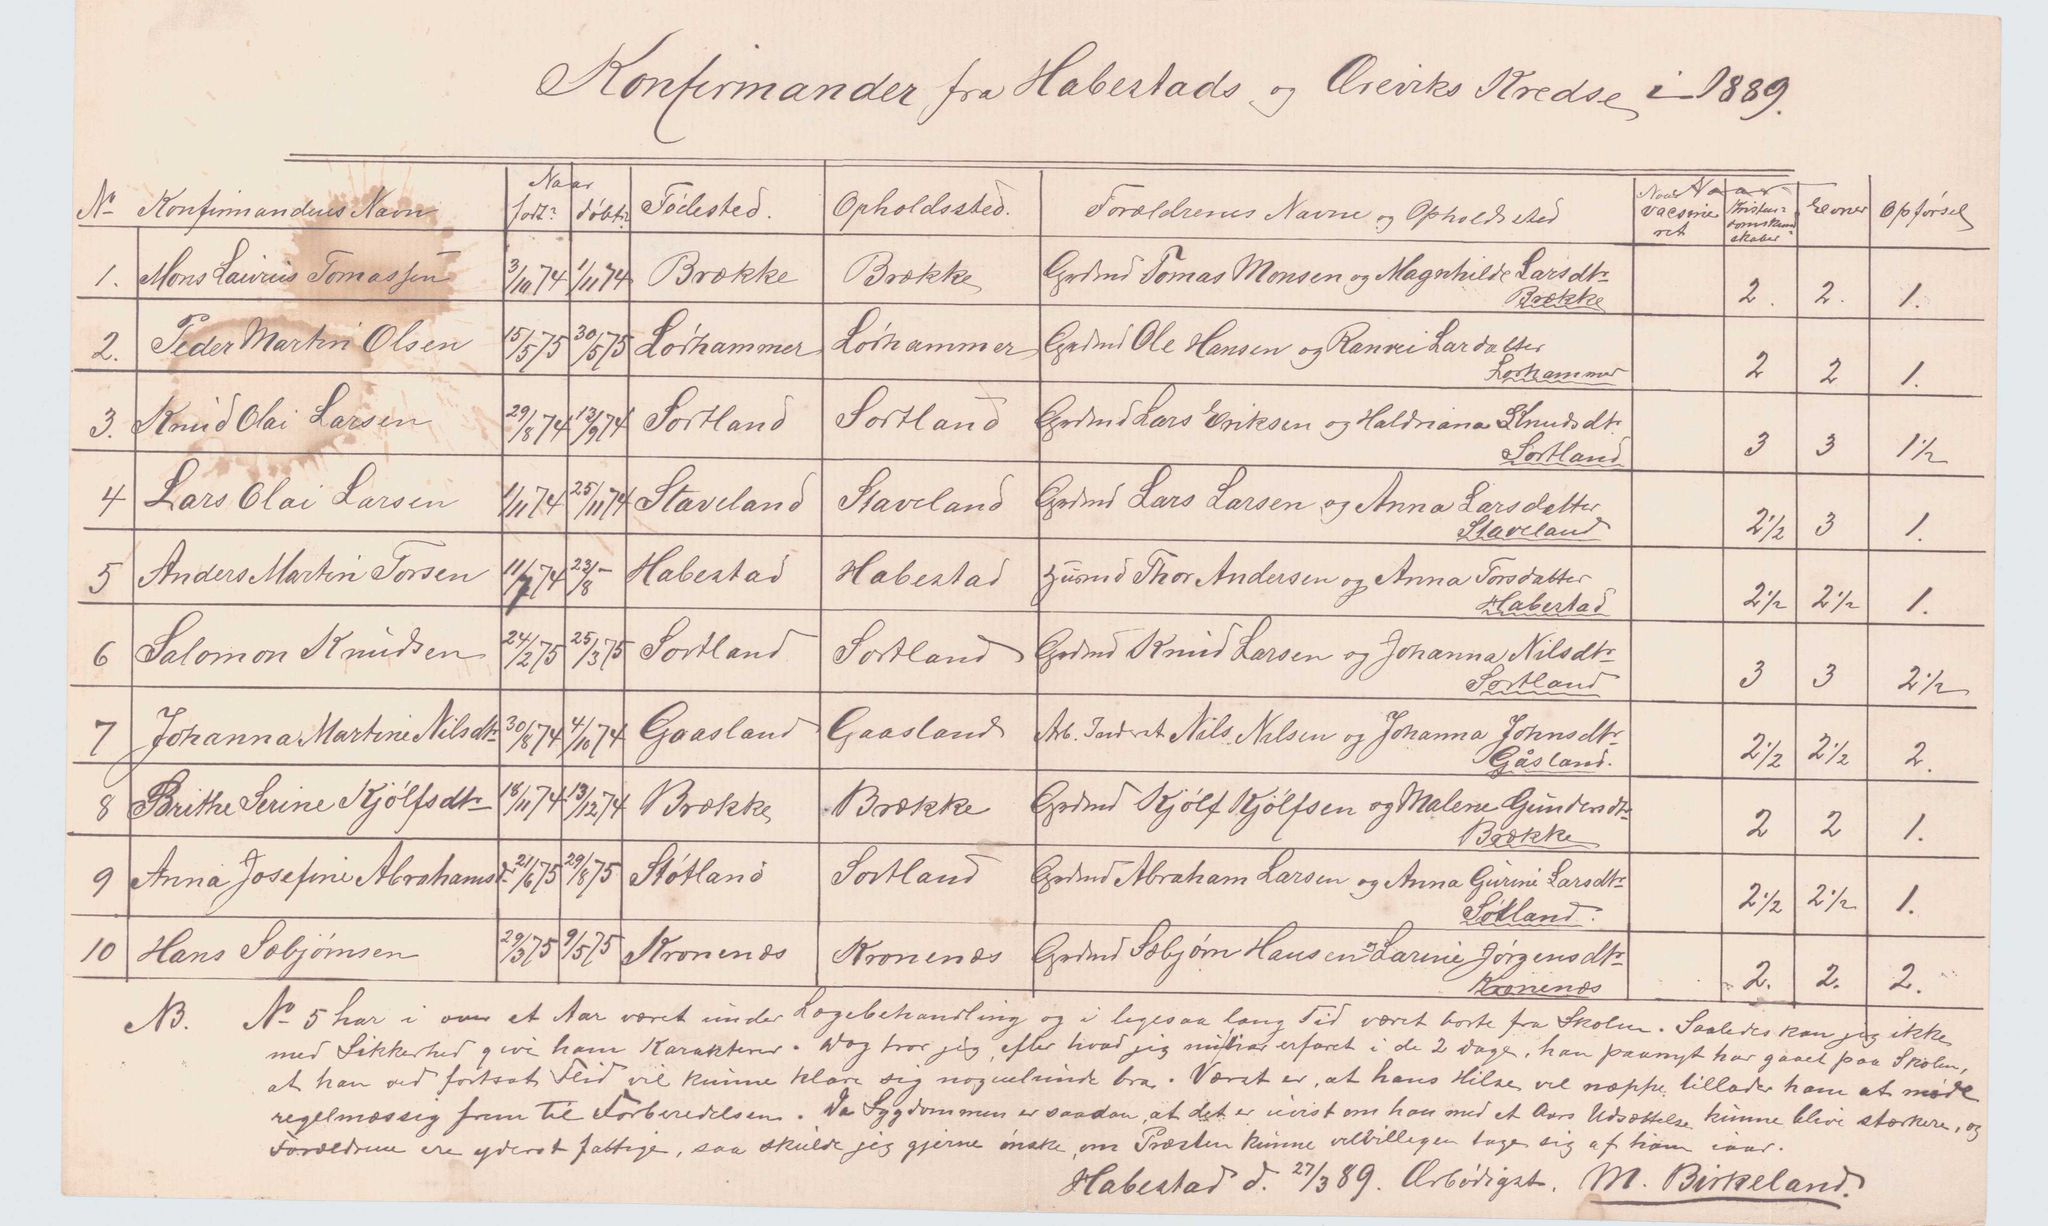 Konfirmander fra Habestads og Ørevirks Kredse i 1889.
No Konfirmandens Navn Naar født? døbt? Fødested. Opholdssted. Forældrenes Navne og Opholdssted Naar vaccineret Kristendomskundskaber Evner Opførsel
1. Mons Laurius Tomassen 3/10 74 1/11 74 Brække Brække Grdmd Tomas Monsen og Magnhilde Larsdtr Brække 2. 2. 1.
2. Peder Martin Olsen 15/5 75 30/5 75 Lørhammer Lørhammer Grdmd Ole Hansen og Ranvei Lardatter Lørhammer 2 2 1.
3. Knud Olai Larsen 29/8 74 13/9 74 Sortland Sortland Grdmd Lars Eriksen og Haldriana Knudsdtr. Sortland 3 3 1 1/2
4 Lars Olai Larsen 1/11 74 25/11 74 Staveland Staveland Grdmd Lars Larsen og Anna Larsdatter Staveland 2 1/2 3 1.
5 Anders Martin Torsen 11/7 74 23/8 – Habestad Habestad Husmd Thor Andersen og Anna Torsdatter Habestad 2 1/2 2 1/2 1.
6 Salomon Knudsen 24/2 75 25/3 75 Sortland Sortland Grdmd Knud Larsen og Johanna Nilsdtr Sortland 3 3 2 1/2
7 Johanna Martine Nilsdtr 30/8 74 4/10 74 Gaasland Gaasland Arb. Inderst Nils Nilsen og Johanna Johnsdtr Gåsland. 2 1/2 2 1/2 2.
8 Brithe Serine Kjølfsdtr 18/11 74 13/12 74 Brække Brække Grdmd Kjølf Kjølfsen og Malene Gundersdtr Brække 2 2 1.
9 Anna Josefine Abrahamsd. 21/6 75 29/8 75 Støtland Sortland Grdmd Abraham Larsen og Anna Gurine Larsdtr Søtland. 2 1/2 2 1/2 1.
10 Hans Sæbjørnsen 29/3 75 9/5 75 Kronenæs Kronenæs Grdmd Sæbjørn Hansen og Larine Jørgensdtr Kronenæs 2. 2. 2.
NB. No 5 har i over et Aar været under Lægebehandling og i ligesaa lang Tid været borte fra Skolen. Saaledes kan jeg ikke
med Sikkerhed give ham Karakterer. Dog tror jeg, efter hvad jeg har erfaret i de 2 Dage, han paanyt har gaaet paa Skolen,
at han ved fortsat Flid vil kunne klare sig nogenlunde bra. Værst er, at hans Hilse vel næppe tillader ham at møde
regelmæssig frem til Forberedelsen. Da Sygdommen er saadan, at det er uvist om han med et Aars Udsættelse kunne blive stærkere, og
Forældrene ere yderst fattige, saa skulde jeg gjerne ønske, om Præsten kunne velvilligen tage sig af ham iaar.
Habestad d. 27/3 89. Ærbødigst, M. Birkeland.